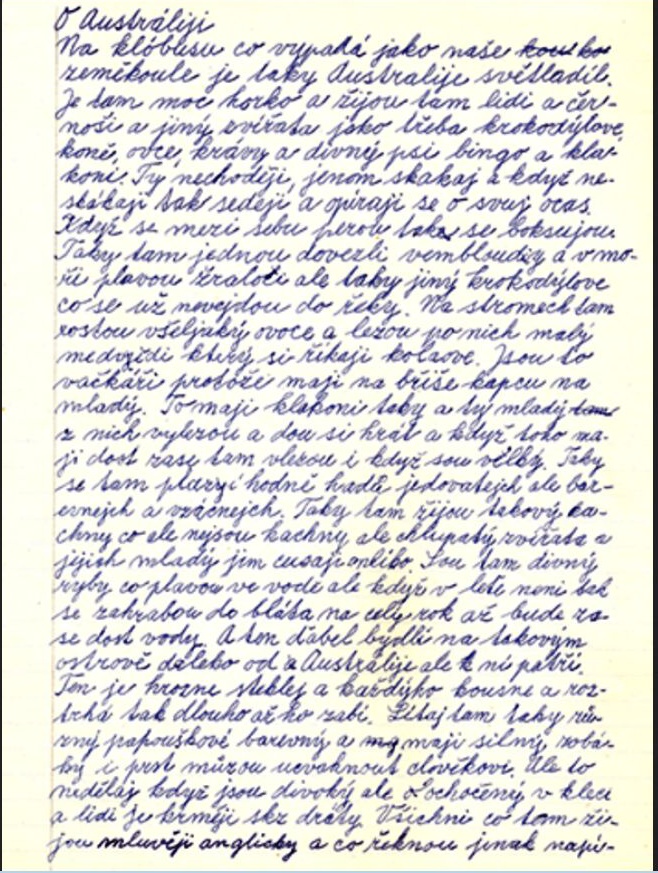 O Austrálniji
Na klóbusu co vypadá jako naše
zeměkoule je taky Australije světladíl.
Je tam moc horko a žijou tam lidi a čer-
noši a jiný zvířata jako třeba krokodýlove,
koně, ovce, krávy a divný psi bingo a kla-
koni. Ty nechoději, jenom skakaj a když ne-
skákají tak sedějí a opírají se o svuj ocas.
Když se mezi sebou perou take se boksujou.
Taky tam jednou dovezli vembloudy a v mo-
ři plavou žraloči ale taky jiný krokodýlove
co se už nevejdou do řeky. Na stromech tam
rostou všeljaký ovoce a lezou po nich malý
medvjedi který si říkaji kolaove. Jsou to
vačkáři protóže maji na bříše kapcu na
mladý. To maji klakoni taky a ty mladý
z nich vylezou a dou si hrát a když toho ma-
ji dost zase tam vlezou i když sou vělký. Taky
se tam plazyi hodně hadů jedovatejch ale bar-
evnejch a vzácnejch. Taky tam žijou takový ka-
chny co ale nejsou kachny ale chlupatý zvířata a
jijich mladý jim cusaji Sou tam divný
ryby co plavou ve vodě ale když v letě neni tak
se zahrabou do bláta na celý rok až bude za-
se dost vody. A ten ďábel býdlí na takovým
ostrově daleko od Austrálije ale k ní patří.
Ten je hrozne a každýho kousne a roz-
trhá tak dlouho až ho zabi. Lítaj tam taky rů-
zný papouškové barevný a maji silný zobá-
ky i prst můzou ucvaknout človékovi. Ale to
nedělaj když jsou divoký ale Lochočený v kleci
a lidi je krměji skz dráty. Všichni co tam ži-
jou mluvěji anglicky a co řeknou jenak napí-